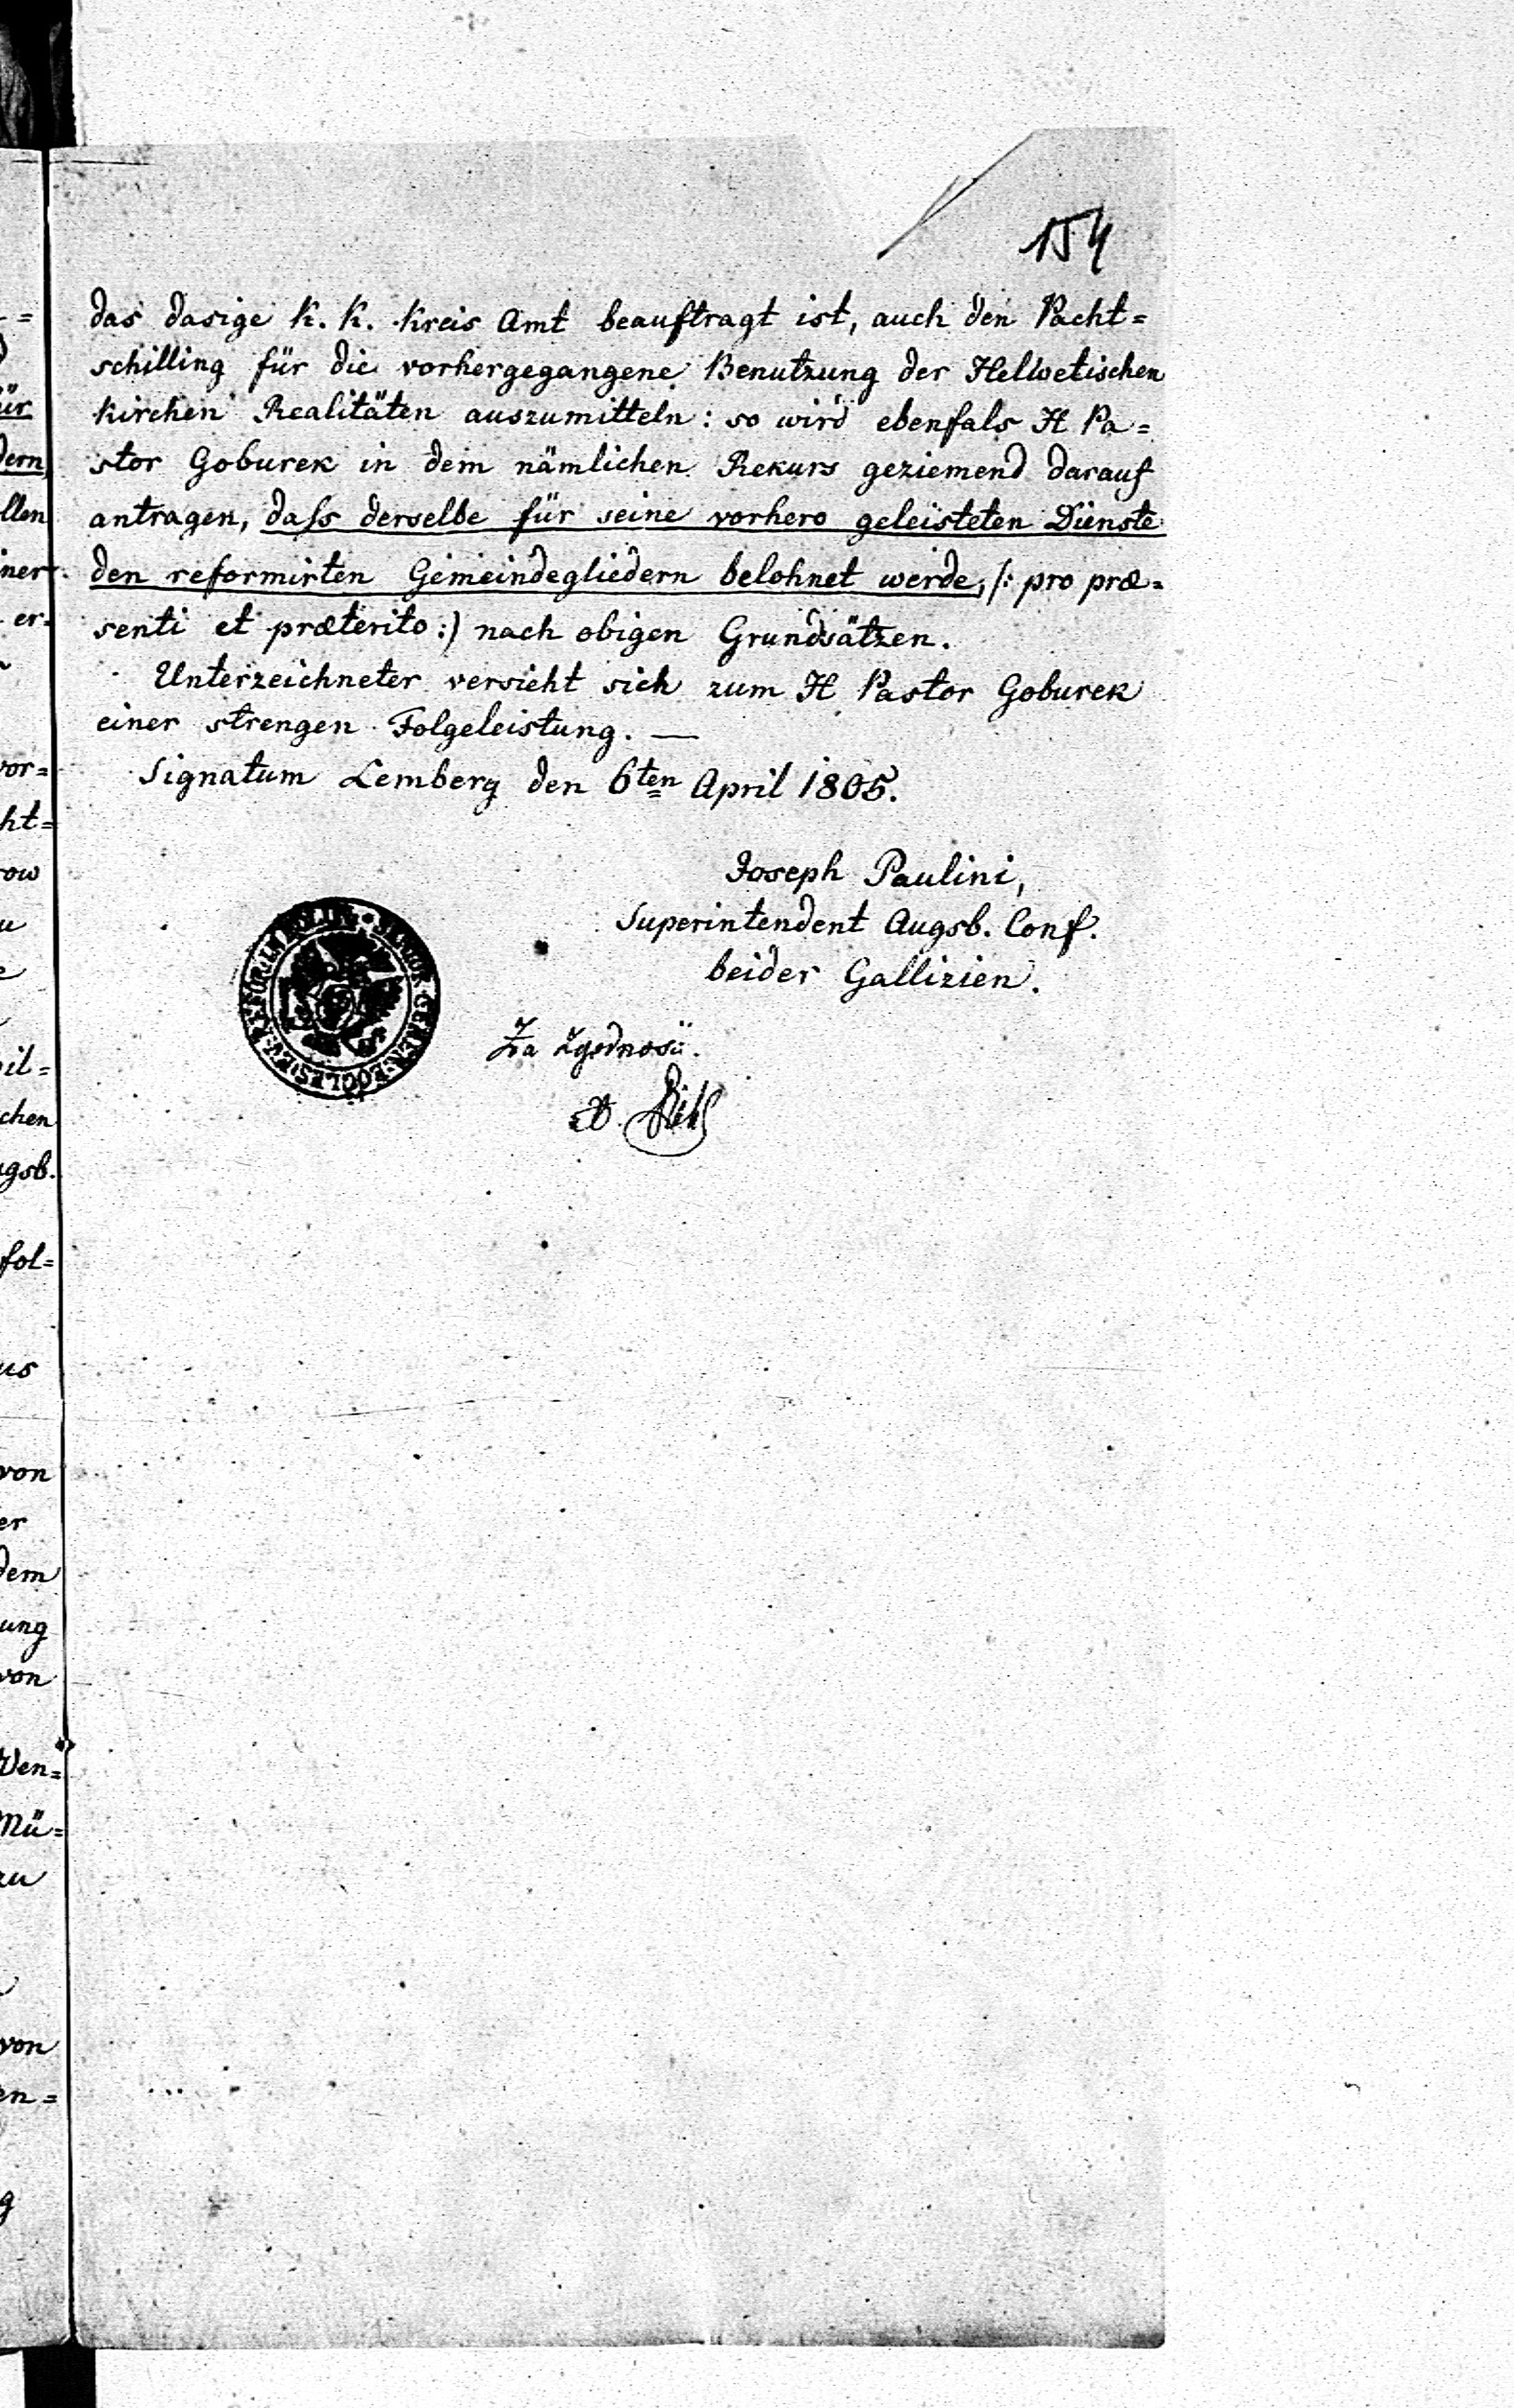 154
das dasige k. k. Kreis Amt beauftragt ist, auch den Pacht=
schilling für die vorhergegangene Benutzung der Helwetischen
Kirchen Realitäten auszumitteln: so wird ebenfals H Pa=
stor Goburek in dem nämlichen Rekurs geziemend darauf
antragen, daſs derselbe für seine vorhero geleisteten Dienste
den reformirten Gemeindegliedern belohnet werde, /: pro præ=
senti et præterito :) nach obigen Grundsätzen.
Unterzeichneter versieht sich zum H Pastor Goburek
einer strengen Folgeleistung. —
Signatum Lemberg den 6ten April 1805.
Joseph Paulini,
Superintendent Augsb. Conf.
beider Gallizien.
Za zgodność.
ür
dern
llen
iner
er=
vor=
ht=
row
u
il=
chen
gsb.
fol=
us
von
er
dem
ung
von
Wen=
Mü=
zu
von
en=
g